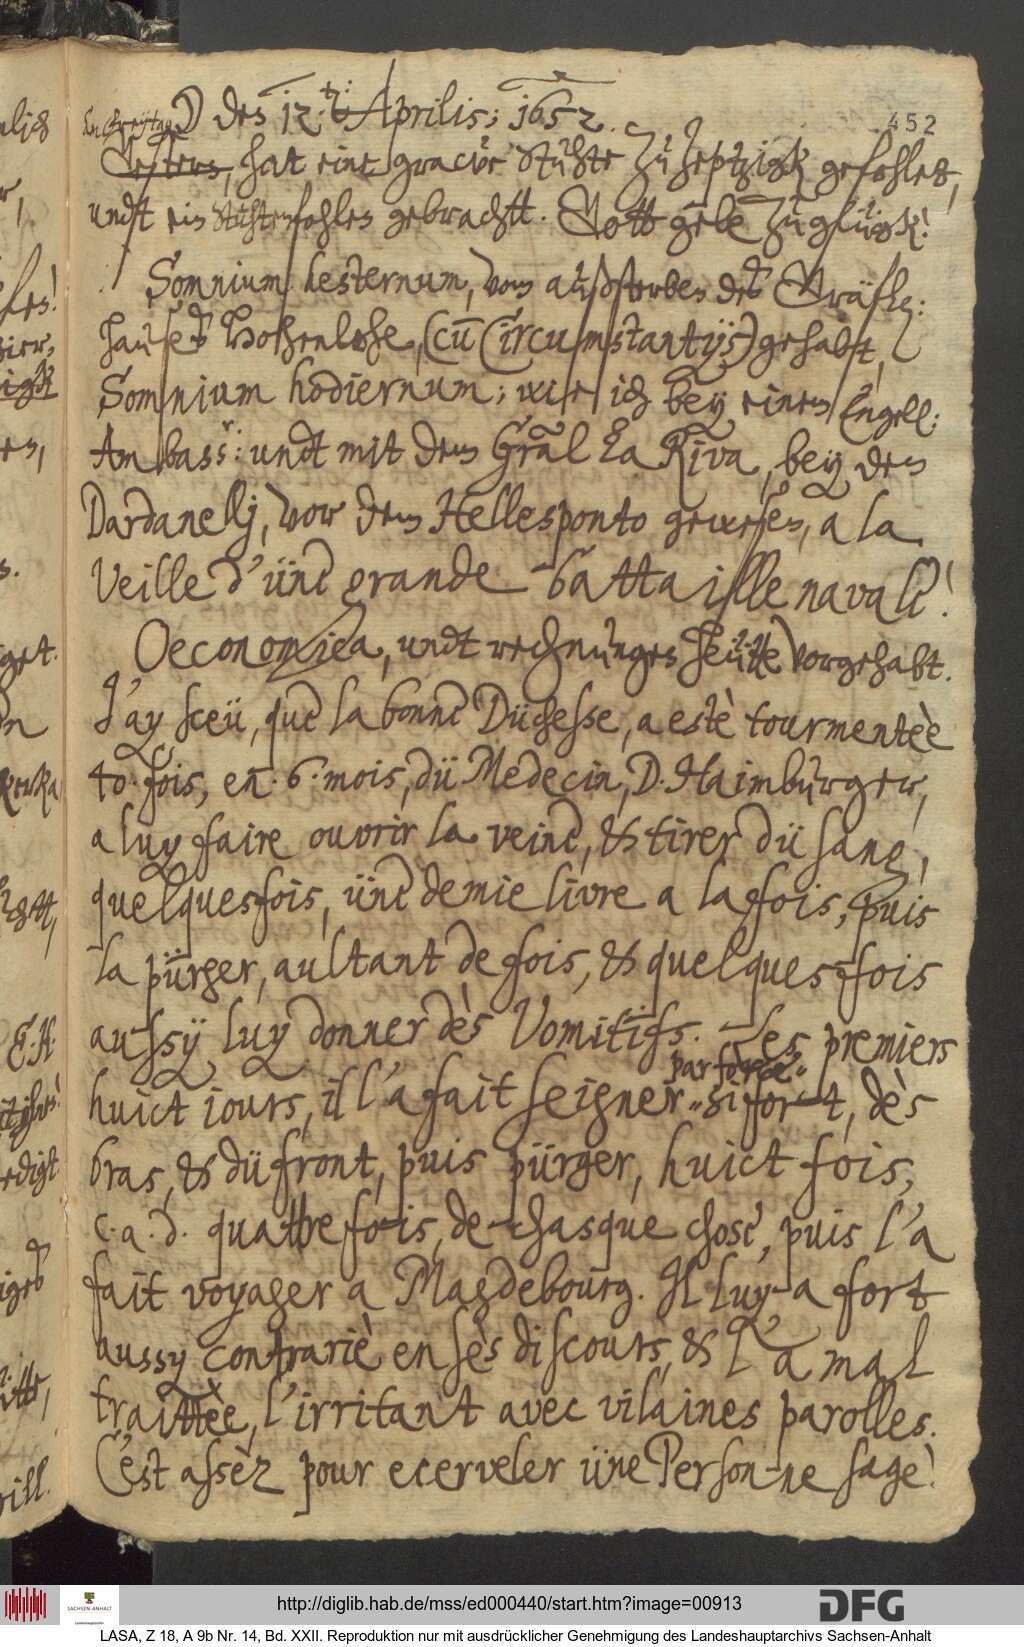 ☽ des 12.ten: Aprilis; 1652.
452
Am Freÿtage
Gestern, hat eine gracior Stuhte zu Zeptzigk gefohlet,
undt ein Stuhtenfohlen gebracht. Gott gebe zu glügk!
Somnium hesternum, vom außsterben des Gräfl:
hauses Hohenlohe, (cum Circumstantijs) gehabt,
Somnium hodiernum; wie ich bey einem Engell:
Ambass:r: undt mit dem Gral La Riva, bey den
Dardanellj, vor dem Hellesponto gewesen, a la
Veille d'üne grande battaille navale!
Oeconomica, undt rechnungen heütte vorgehabt.
J'ay sceü, que la bonne Düchesse, a estè tourmentèe
40. fois, en. 6. mois, dü Medecin, D. Haimbürger,
a luy faire ouvrir la veine, & tirer dü sang,
quelquesfois, üne demie livre a la fois, puis
la pürger, aultant de fois, & quelques fois
aussÿ luy donner dès Vomitifs. Les premiers
par force
huict iours, il l'a fait seigner si fort, dès
bras, & dü front, puis pürger, huict fois,
c. a. d. quattre fois, de chasque chose, puis l'a
fait voyager a Magdebourg. Il luy a fort
aussy contrariè en sès discours, & l'a mal
traittèe, l'irritant avec vilaines parolles.
C'est assèz pour ecerveler üne Personne sage!
http://diglib.hab.de/mss/ed000440/start.htm?image=00913
SACHSEN-ANHALT
Landeshauptarchiv
DFG
LASA, Z 18, A 9b Nr. 14, Bd. XXII. Reproduktion nur mit ausdrücklicher Genehmigung des Landeshauptarchivs Sachsen-Anhalt